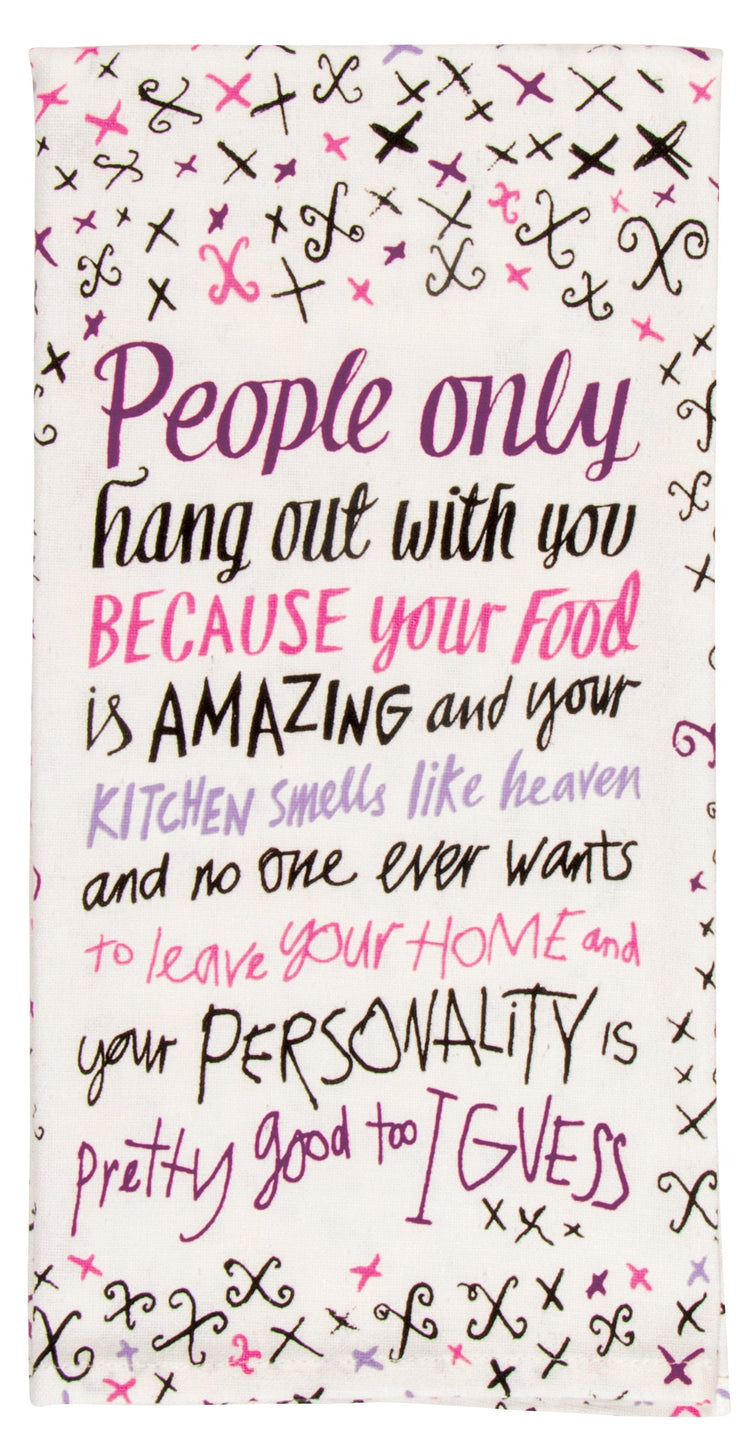 People only
hang out with you
BECAUSE your Food
is AMAZING and your
KITCHEN smells like heaven
and no one ever wants
to leave your HOME and
your PERSONALiTY is
pretty good too I GUESS
xxx